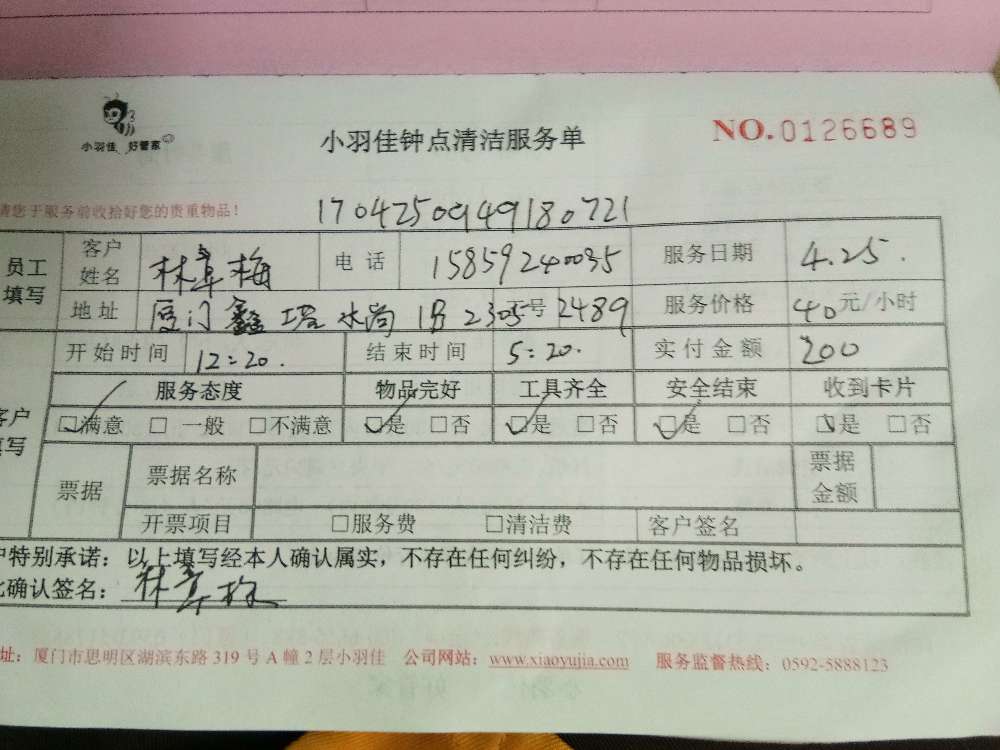 小羽佳 好管家
小羽佳钟点清洁服务单
NO.0126689
请您于服务前收拾好您的贵重物品！
1704250949180721
员工填写 客户姓名 林 梅 电话 15859240035 服务日期 4.25.
地址 厦门鑫塔水尚 1B 2305号 2489 服务价格 40元/小时
开始时间 12:20. 结束时间 5:20. 实付金额 200
客户填写 服务态度 物品完好 工具齐全 安全结束 收到卡片
☑满意 □ 一般 □不满意 ☑是 □否 ☑是 □否 ☑是 □否 ☑是 □否
票据 票据名称 票据金额
开票项目 □服务费 □清洁费 客户签名
户特别承诺：以上填写经本人确认属实，不存在任何纠纷，不存在任何物品损坏。
此确认签名：林
址：厦门市思明区湖滨东路 319 号 A 幢 2 层小羽佳 公司网站：www.xiaoyujia.com 服务监督热线：0592-5888123